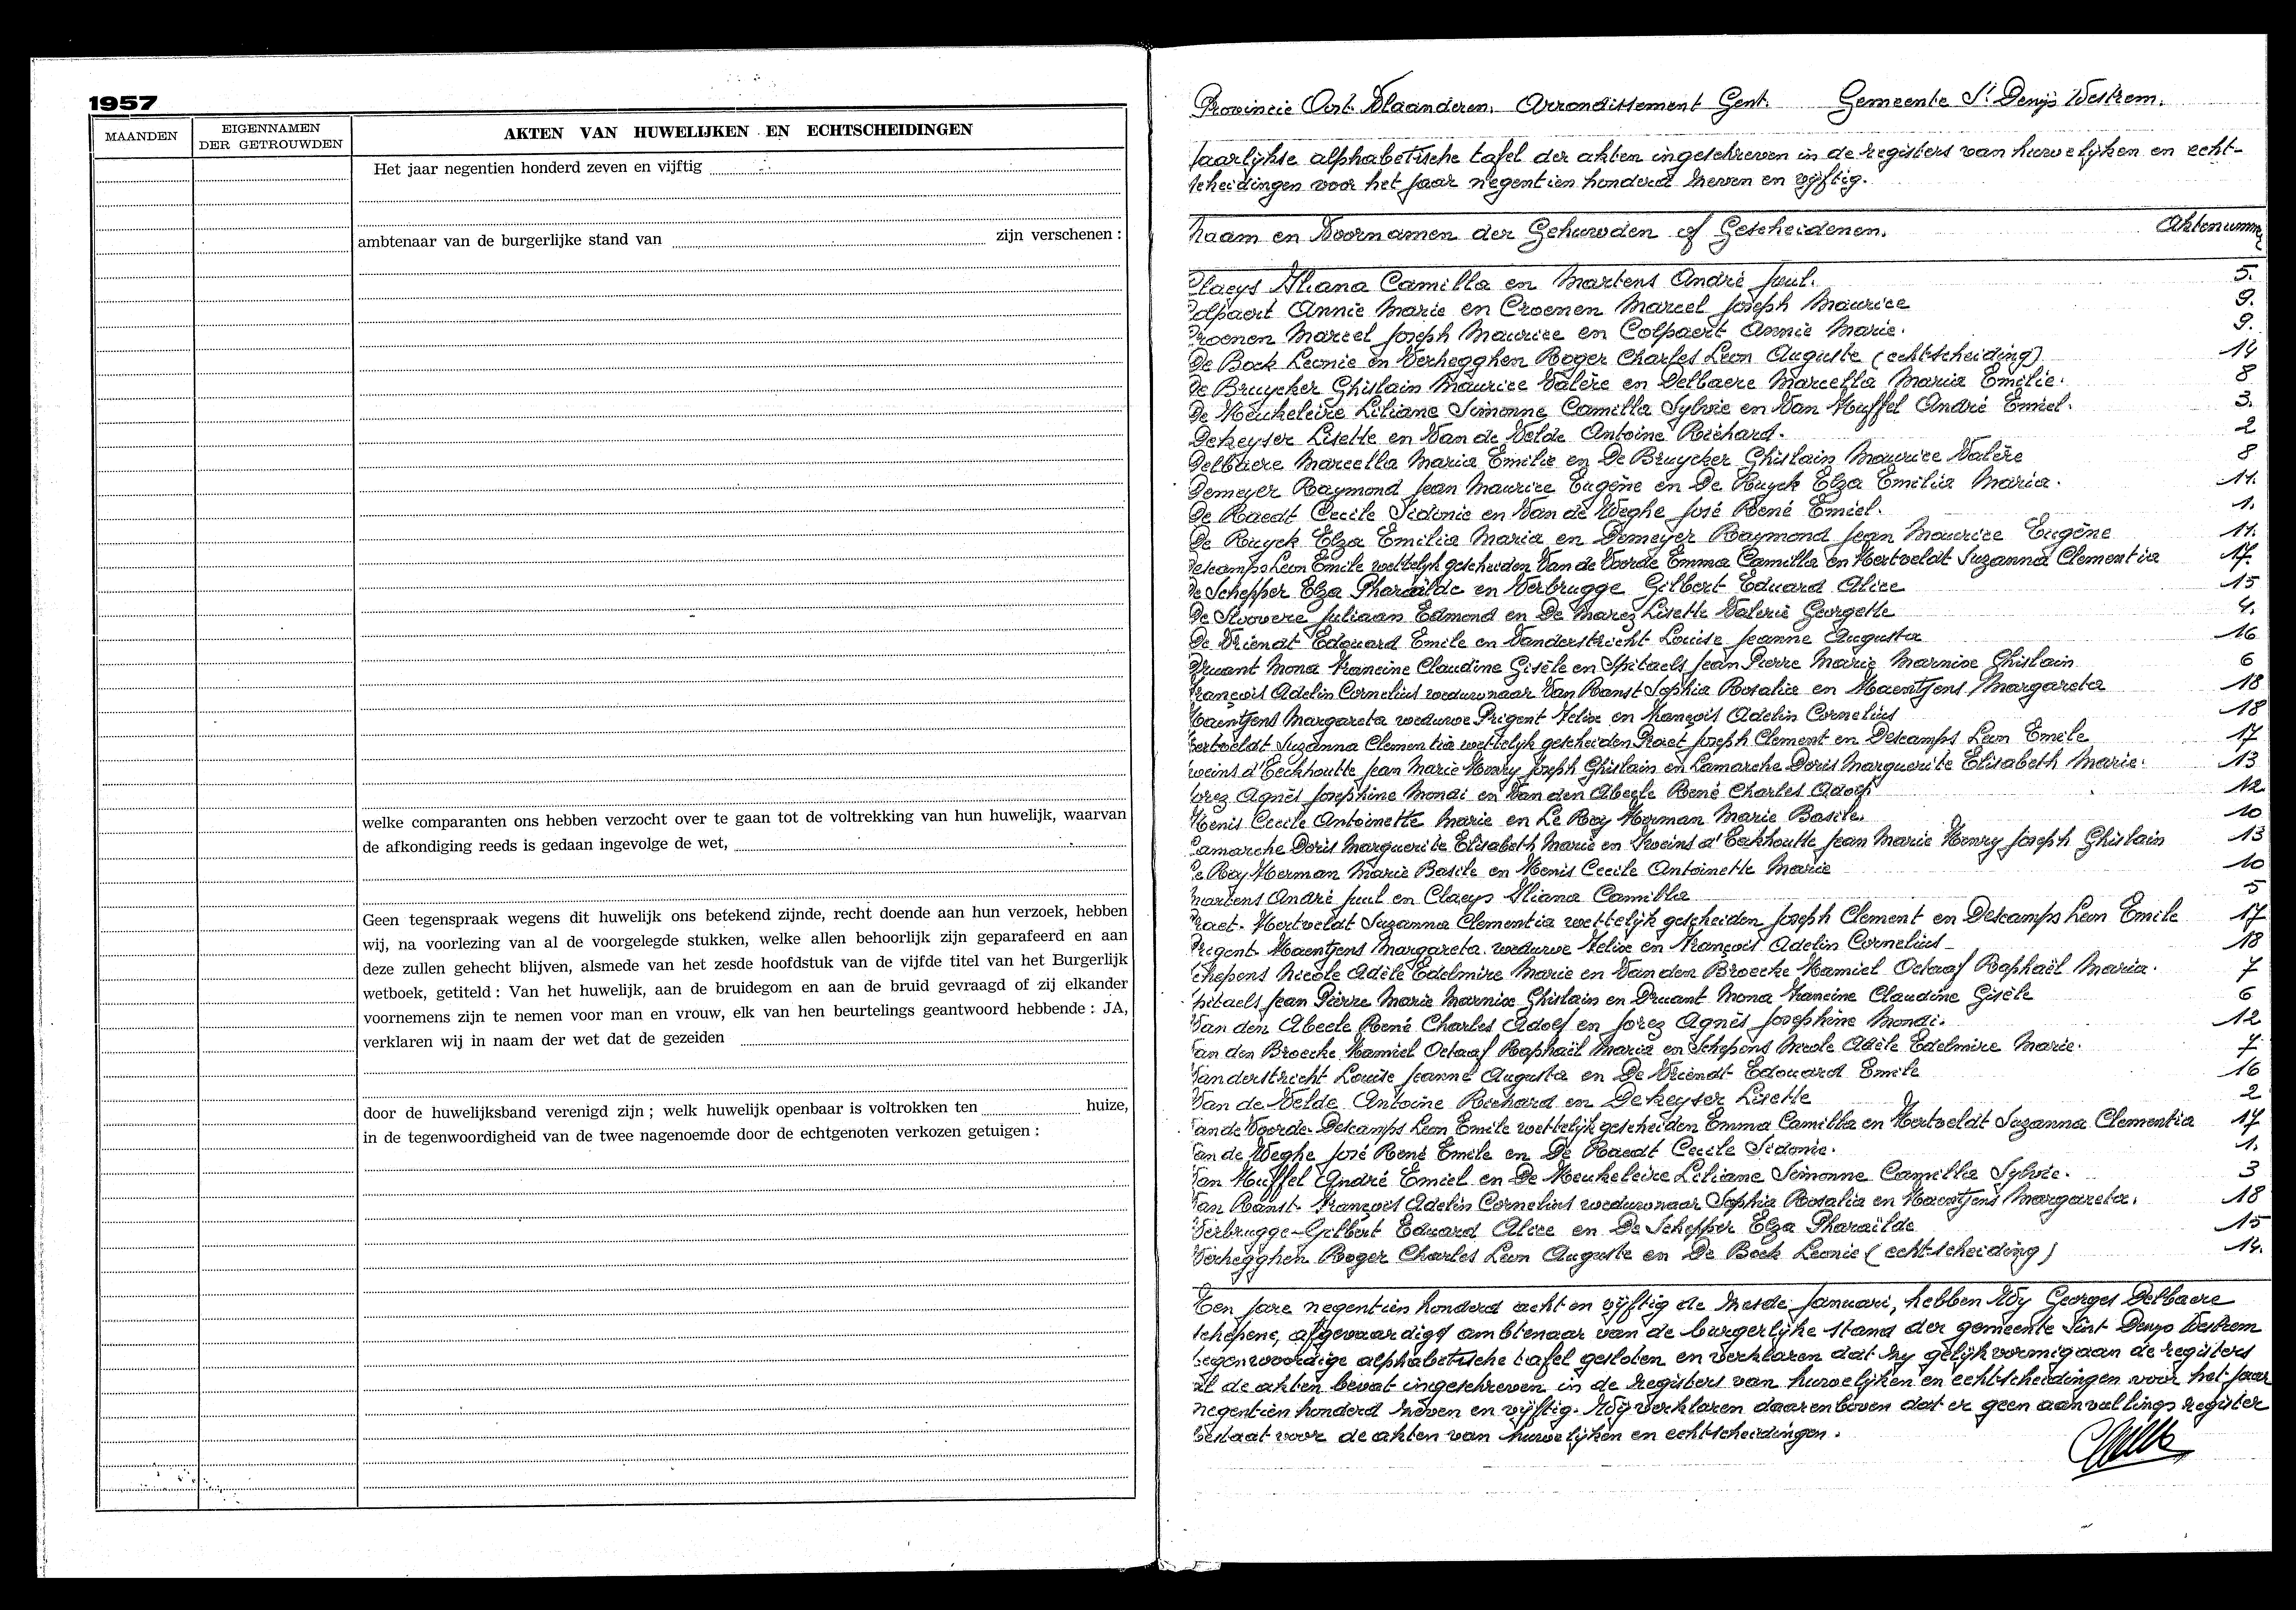 1957
MAANDEN
EIGENNAMEN
DER GETROUWDEN
AKTEN VAN HUWELIJKEN EN ECHTSCHEIDINGEN
Het jaar negentien honderd zeven en vijftig
ambtenaar van de burgerlijke stand van zijn verschenen :
welke comparanten ons hebben verzocht over te gaan tot de voltrekking van hun huwelijk, waarvan
de afkondiging reeds is gedaan ingevolge de wet,
Geen tegenspraak wegens dit huwelijk ons betekend zijnde, recht doende aan hun verzoek, hebben
wij, na voorlezing van al de voorgelegde stukken, welke allen behoorlijk zijn geparafeerd en aan
deze zullen gehecht blijven, alsmede van het zesde hoofdstuk van de vijfde titel van het Burgerlijk
wetboek, getiteld : Van het huwelijk, aan de bruidegom en aan de bruid gevraagd of zij elkander
voornemens zijn te nemen voor man en vrouw, elk van hen beurtelings geantwoord hebbende : JA,
verklaren wij in naam der wet dat de gezeiden
door de huwelijksband verenigd zijn ; welk huwelijk openbaar is voltrokken ten huize,
in de tegenwoordigheid van de twee nagenoemde door de echtgenoten verkozen getuigen :
Provincie Oost-Vlaanderen. Arrondissement Gent. Gemeente St Denijs Westrem.
Jaarlijkse alphabetische tafel der akten ingeschreven in de registers van huwelijken en echt-
scheidingen voor het jaar negentien honderd zeven en vijftig.
Naam en Voornamen der Gehuwden of Gescheidenen. Aktenumm
Claeys Iliana Camilla en Martens André Juul. 5.
Colpaert Annie Marie en Croenen Marcel Joseph Maurice 9.
Croenen Marcel Joseph Maurice en Colpaert Annie Marie. 9.
De Bock Leonie en Verhegghen Roger Charles Leon Auguste (echtscheiding) 14
De Bruycker Ghislain Maurice Valère en Delbaere Marcella Maria Emilie. 8
De Heukeleire Liliane Simonne Camilla Sylvie en Van Huffel André Emiel. 3.
Dekeyser Lisette en Van de Velde Antoine Richard. 2
Delbaere Marcella Maria Emilie en De Bruycker Ghislain Maurice Valère 8
Demeyer Raymond Jean Maurice Eugène en De Ruyck Elza Emilia Maria. 11.
De Raedt Cecile Sidonie en Van de Weghe José René Emiel. 1.
De Ruyck Elza Emilia Maria en Demeyer Raymond Jean Maurice Eugène 11.
Descamps Leon Emile wettelijk gescheiden Van de Voorde Emma Camilla en Hertveldt Suzanna Clementia 17.
De Schepper Elza Pharaïlde en Verbrugge Gilbert Eduard Alice 15
De Stoovere Juliaan Edmond en De Marez Lisette Valerie Georgette 4.
De Vriendt Edouard Emile en Vanderstricht Louise Jeanne Augusta 16
Druant Mona Francine Claudine Gisèle en Spitaels Jean Pierre Marie Marnixe Ghislain 6
François Adelin Cornelius weduwnaar Van Ranst Sophia Rosalia en Haentjens Margareta 18
Haentjens Margareta weduwe Prigent Felix en François Adelin Cornelius 18
Hertveldt Suzanna Clementia wettelijk gescheiden Praet Joseph Clement en Descamps Leon Emile 17
Iweins d'Eeckhoutte Jean Marie Henry Joseph Ghislain en Lamarche Doris Marguerite Elisabeth Marie. 13
Jorez Agnès Josephine Mondi en Van den Abeele René Charles Adolf 12.
Kenis Cecile Antoinette Marie en Le Roy Herman Marie Basile. 10
Lamarche Doris Marguerite Elisabeth Marie en Iweins d'Eeckhoutte Jean Marie Henry Joseph Ghislain 13
Le Roy Herman Marie Basile en Kenis Cecile Antoinette Marie 10
Martens André Juul en Claeys Iliana Camilla 5
Praet. Hertveldt Suzanna Clementia wettelijk gescheiden Joseph Clement en Descamps Leon Emile 17
Prigent. Haentjens Margareta weduwe Felix en François Adelin Cornelius 18
Schepens Nicole Adèle Edelmire Marie en Van den Broecke Kamiel Octaaf Raphaël Maria. 7
Spitaels Jean Pierre Marie Marnixe Ghislain en Druant Mona Francine Claudine Gisèle 6
Van den Abeele René Charles Adolf en Jorez Agnès Josephine Mondi. 12
Van den Broecke Kamiel Octaaf Raphaël Maria en Schepens Nicole Adèle Edelmire Marie. 7.
Vanderstricht Louise Jeanne Augusta en De Vriendt Edouard Emile 16
Van de Velde Antoine Richard en Dekeyser Lisette 2
Van de Voorde. Descamps Leon Emile wettelijk gescheiden Emma Camilla en Hertveldt Suzanna Clementia 17
Van de Weghe José René Emile en De Raedt Cecile Sidonie. 1.
Van Huffel André Emiel en De Heukeleire Liliane Simonne Camilla Sylvie. 3
Van Ranst. François Adelin Cornelius weduwnaar Sophia Rosalia en Haentjens Margareta. 18
Verbrugge Gilbert Eduard Alice en De Schepper Elza Pharaïlde 15
Verhegghen Roger Charles Leon Auguste en De Bock Leonie (echtscheiding) 14.
Ten jare negentien honderd acht en vijftig de zesde Januari, hebben Wij Georges Delbaere
schepene, afgevaardigd ambtenaar van de burgerlijke stand der gemeente Sint Denijs Westrem
tegenwoordige alphabetische tafel gesloten en verklaren dat zij gelijkvormig aan de registers
al de akten bevat ingeschreven in de registers van huwelijken en echtscheidingen voor het jaar
negentien honderd zeven en vijftig. Wij verklaren daarenboven dat er geen aanvullings register
bestaat voor de akten van huwelijken en echtscheidingen.